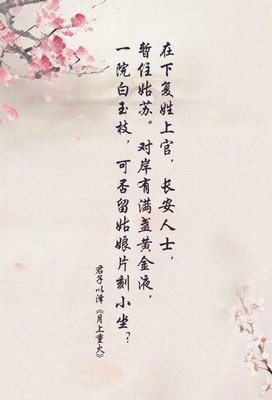 在下复姓上官，长安人士，
暂住姑苏。对岸有满盏黄金液，
一院白玉枝，可否留姑娘片刻小坐？
君子以泽《月上重火》